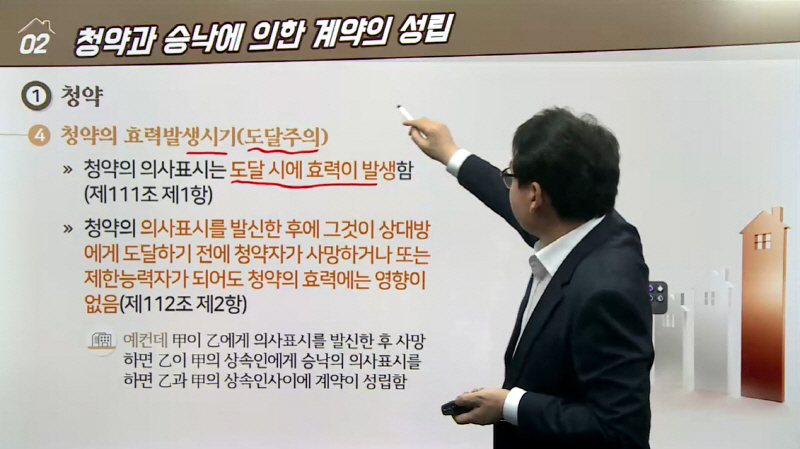 02 청약과 승낙에 의한 계약의 성립
1 청약
4 청약의 효력발생시기(도달주의)
» 청약의 의사표시는 도달 시에 효력이 발생함
(제111조 제1항)
» 청약의 의사표시를 발신한 후에 그것이 상대방
에게 도달하기 전에 청약자가 사망하거나 또는
제한능력자가 되어도 청약의 효력에는 영향이
없음(제112조 제2항)
예컨데 甲이 乙에게 의사표시를 발신한 후 사망
하면 乙이 甲의 상속인에게 승낙의 의사표시를
하면 乙과 甲의 상속인사이에 계약이 성립함